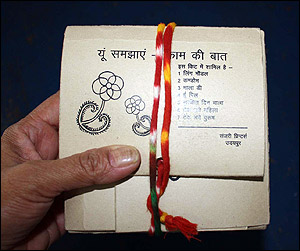 यूं समझाएं - काम की बात
इस किट में शामिल है -
1 लिंग मॉडल
2 कण्डोम
3 माला डी
4 ई पिल
माला
महिला
पुरूष
संजरी प्रिन्टर्स
उदयपुर